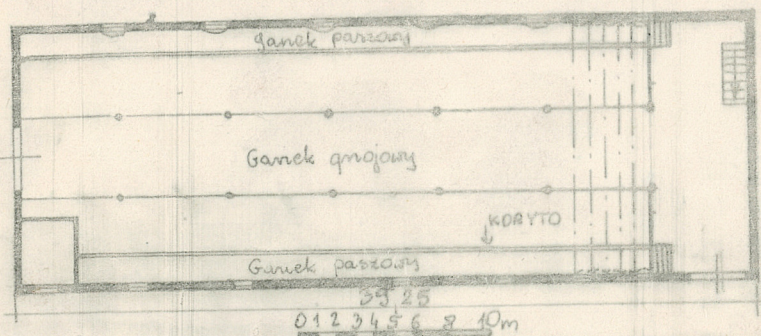 ganek paszowy
Ganek gnojowy
KORYTO
Ganek paszowy
39 25
0 1 2 3 4 5 6 8 10m